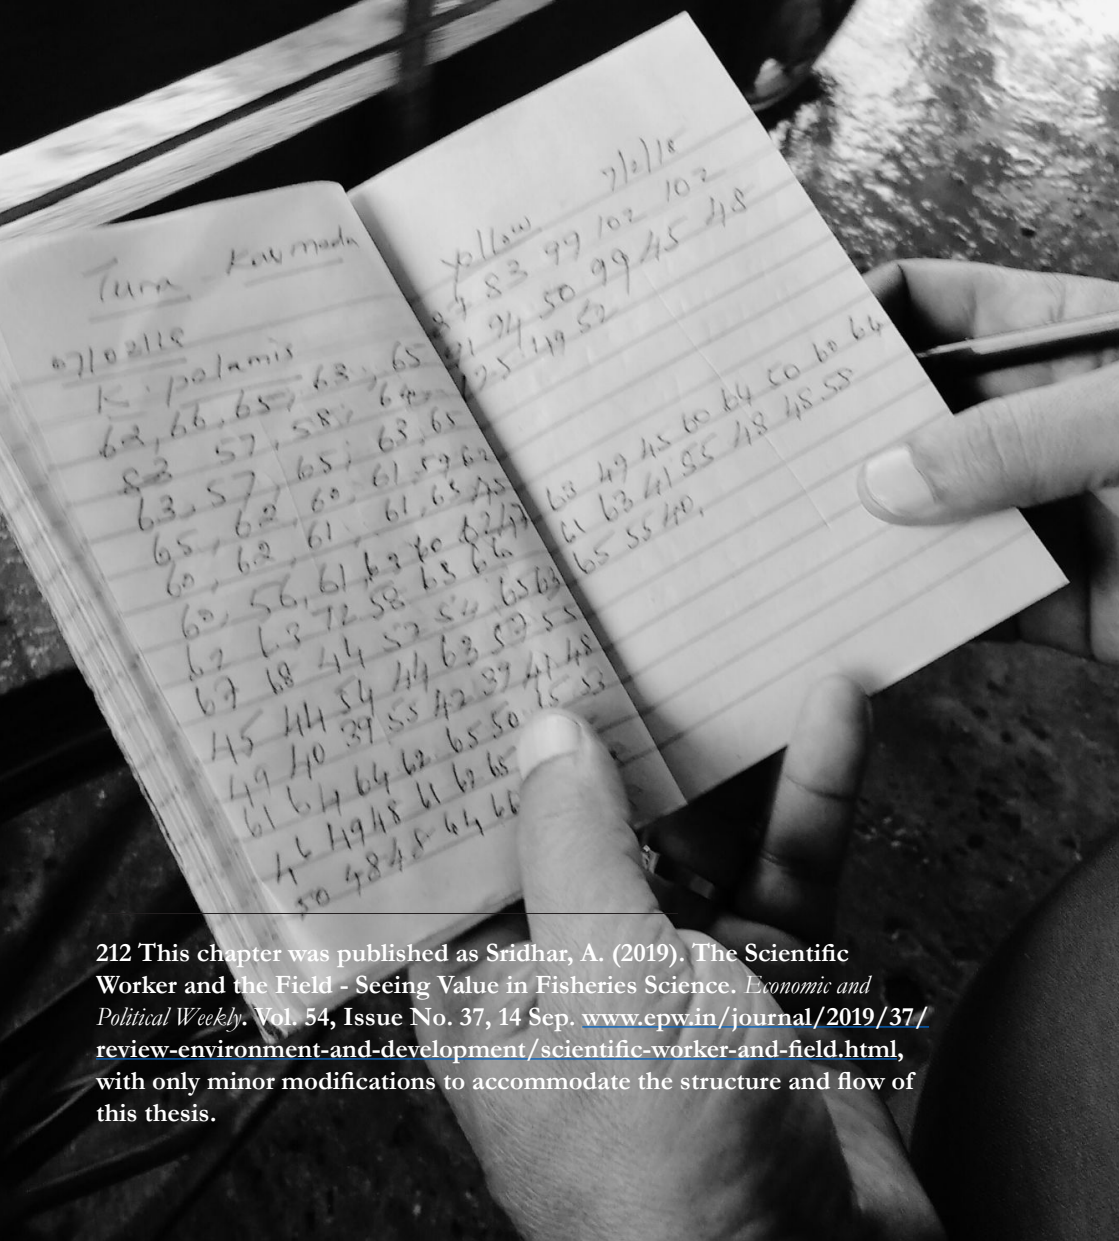 Tuna Kawmada
07/02/18
K. pelamis
62, 66, 65, 63, 65
83 57, 58, 64,
63, 57, 65, 63, 65
65, 62, 60, 61 59 62
60, 62, 61, 61, 65 45
60, 56, 61, 63 60 62 47
62 63 72 58 63 66
67 68 44 57 54, 65 63
45 44 54 44 63 57 55
49 40 39 55 42 39 41 48
61 64 64 62 65 50 65 53
46 49 48 61 62 65
50 48 48 64 66
7/2/18
yellow
87 83 99 102 102
91 94 50 99 45 48
125 49 52
63 49 45 60 64 50 60 64
61 63 41 55 48 48 58
65 55 40.
212 This chapter was published as Sridhar, A. (2019). The Scientific
Worker and the Field - Seeing Value in Fisheries Science. Economic and
Political Weekly. Vol. 54, Issue No. 37, 14 Sep. www.epw.in/journal/2019/37/
review-environment-and-development/scientific-worker-and-field.html,
with only minor modifications to accommodate the structure and flow of
this thesis.